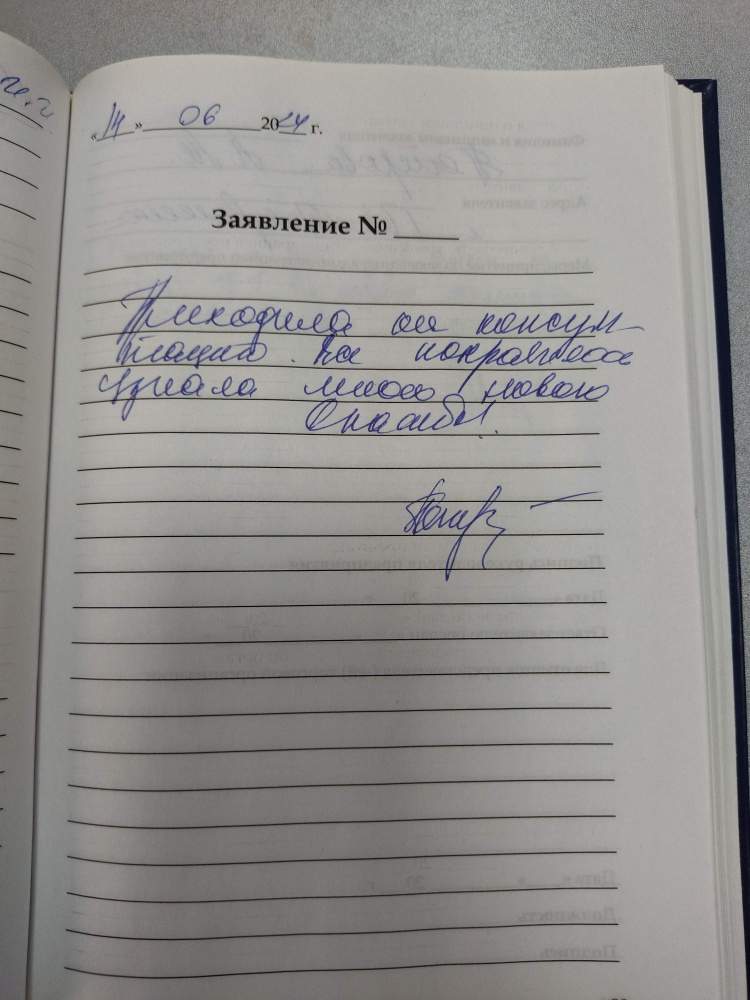 «14» 06 2024 г.
Заявление №
Приходила на консуль
тацию. Мне понравилось
Узнала много нового
Спасибо!